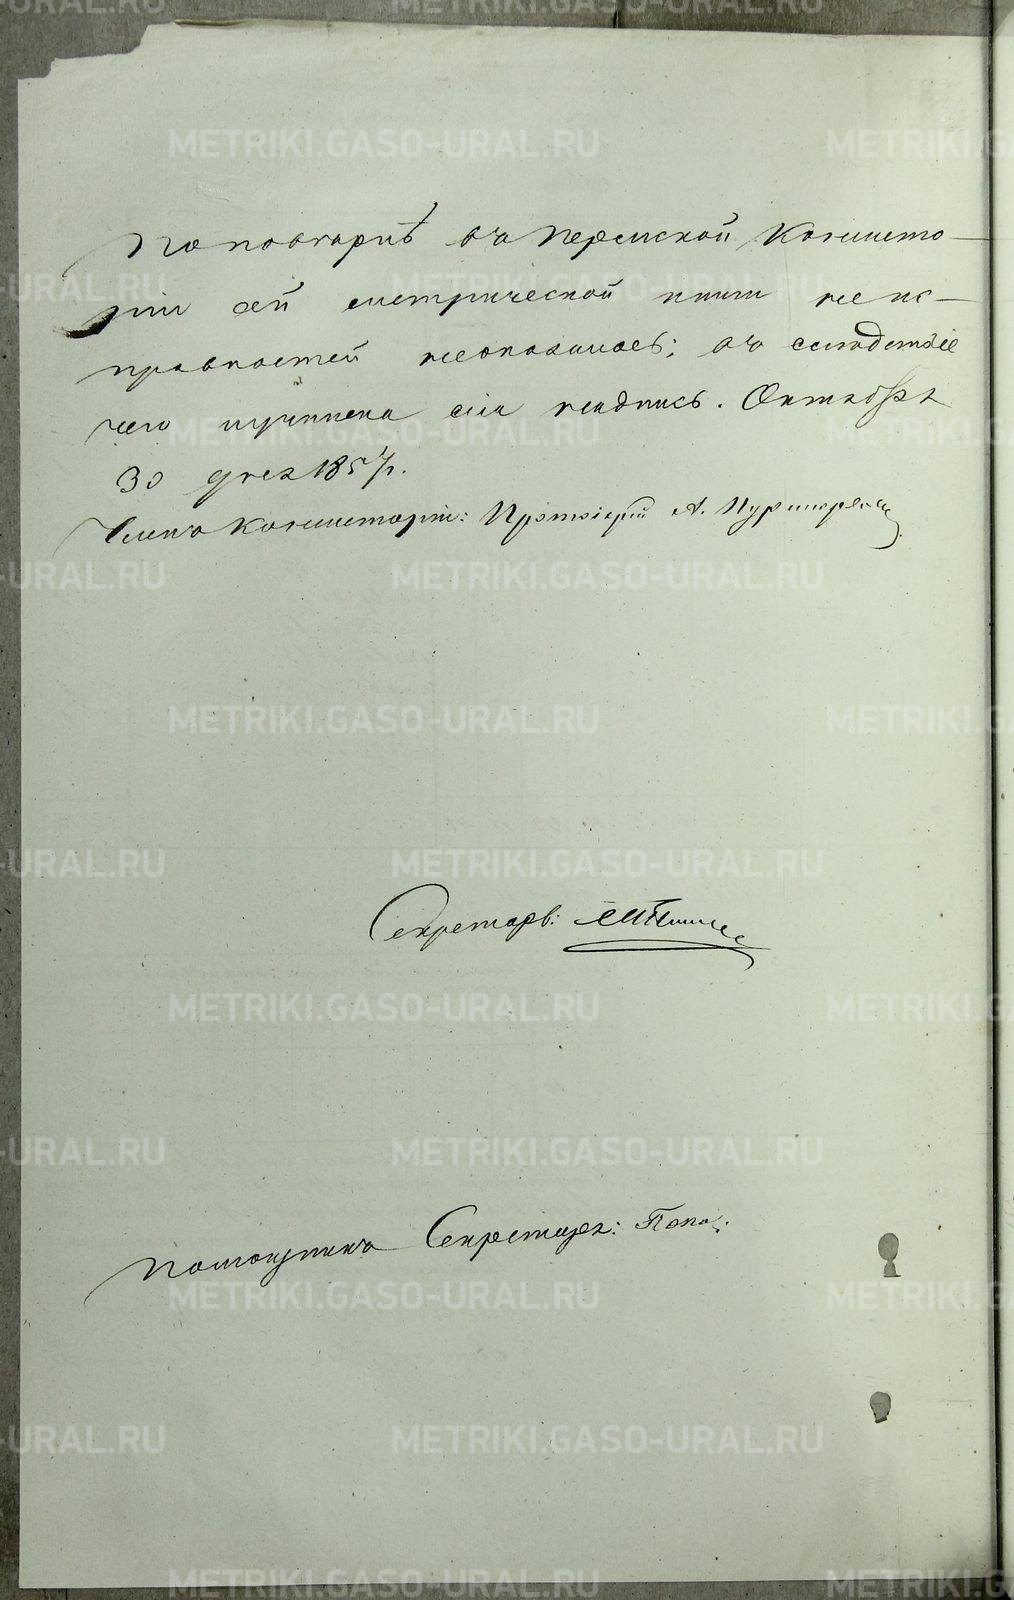 По повѣркѣ въ Пермской Консисто-
ріи сей метрической книги неис-
правностей неоказалось; въ слѣдствіе
чего учинена сія надпись. Октября
30 дня 1857 г.
Членъ Консисторіи: Протоіерей А.
Секретарь:
Помощникъ Секретаря: Попо:
METRIKI.GASO-URAL.RU